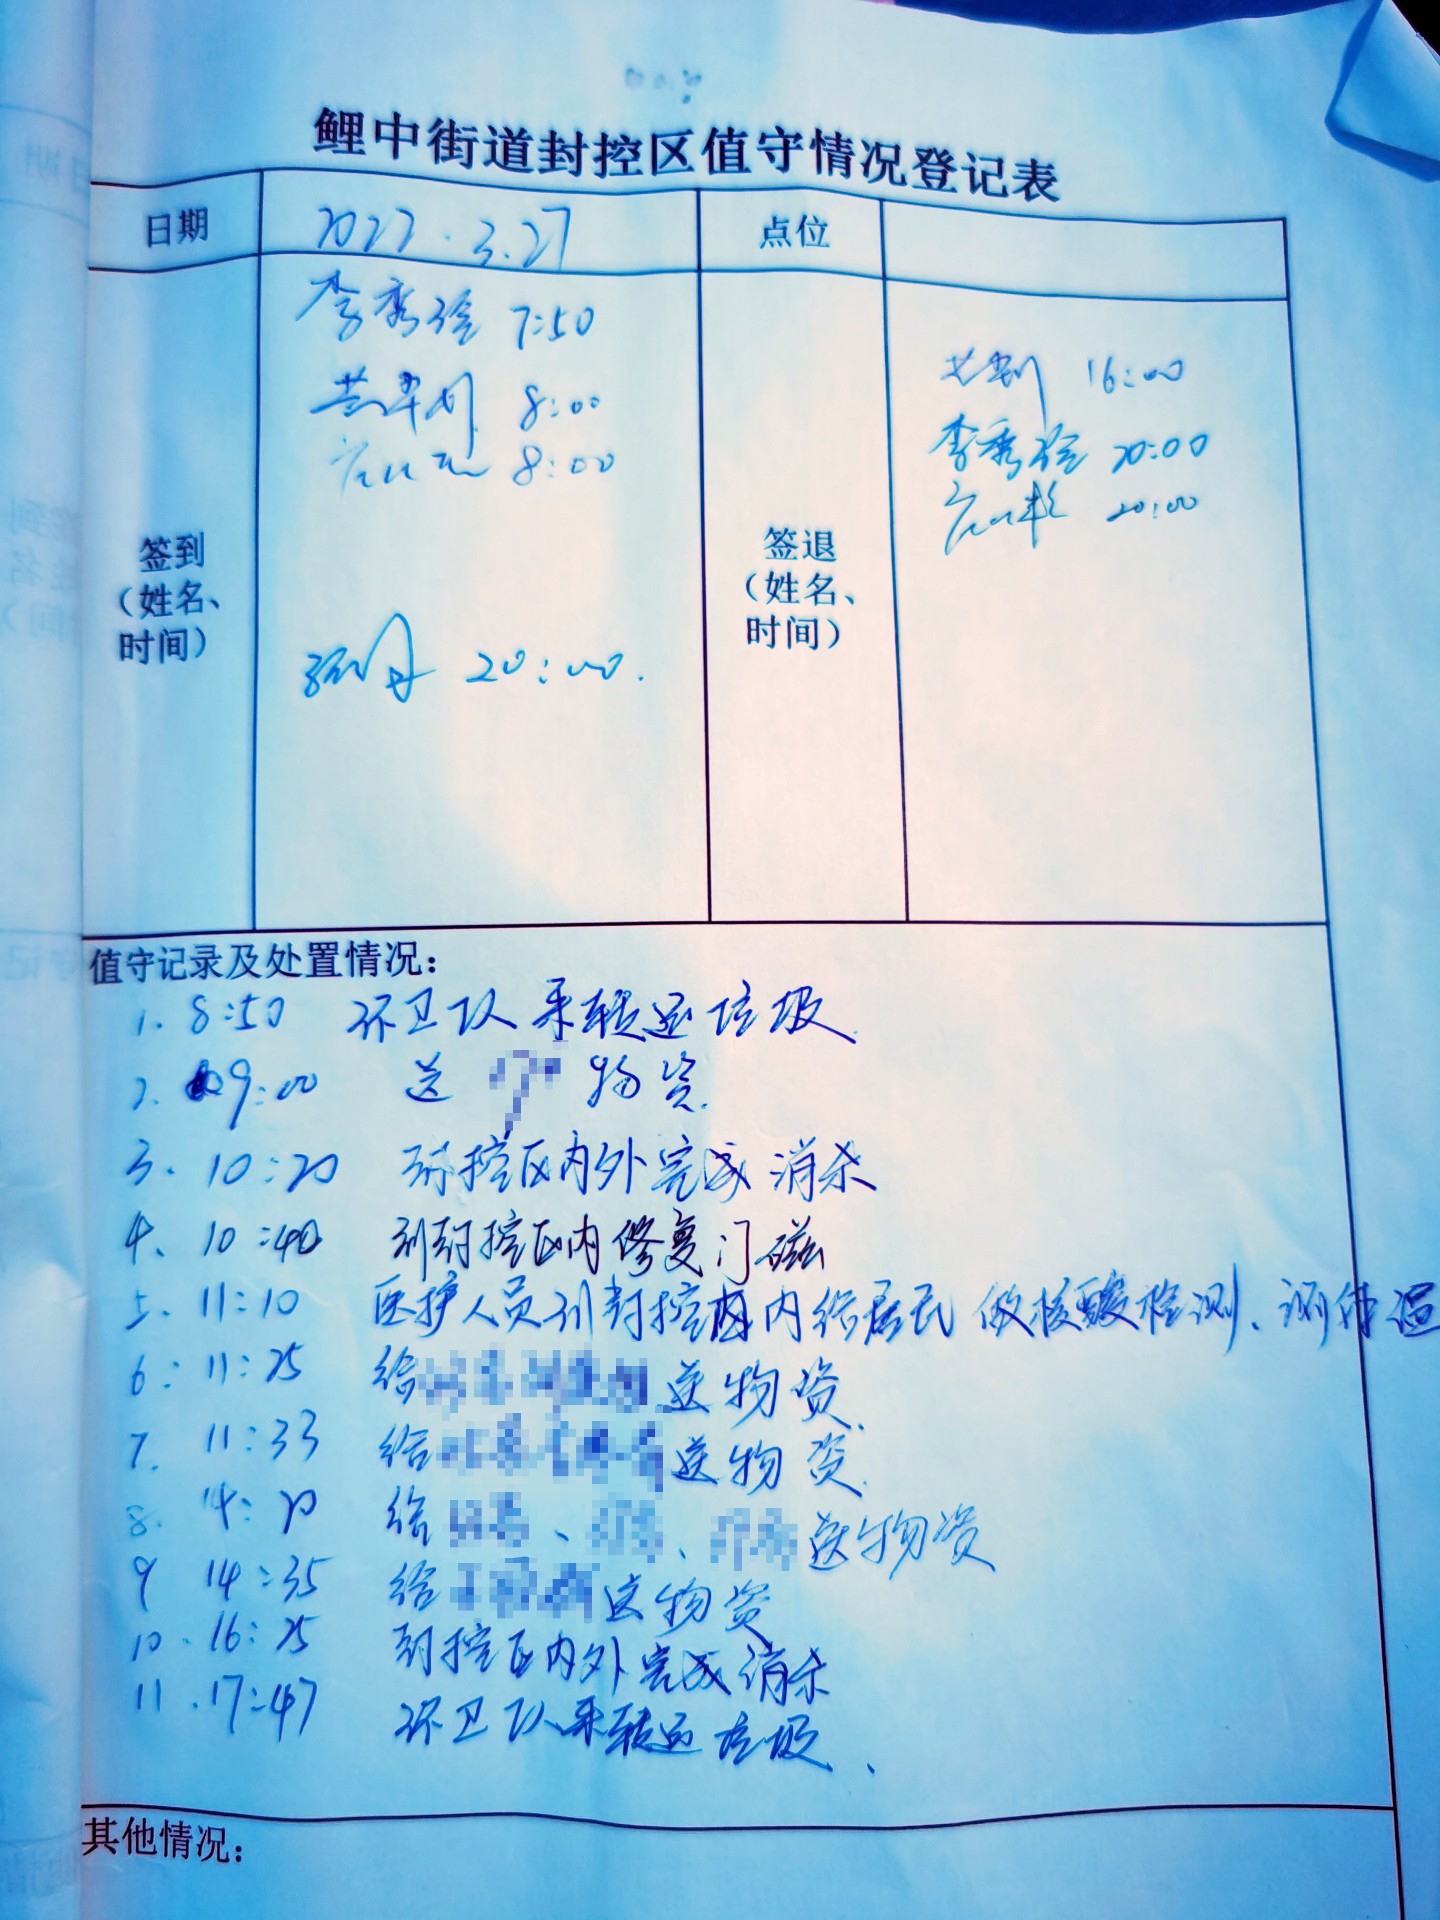 鲤中街道封控区值守情况登记表
日期 2022.3.27 点位
签到
(姓名、
时间)
李秀 7:50
8:00
8:00
20:00.
签退
(姓名、
时间)
16:00
李秀 20:00
20:00
值守记录及处置情况:
1. 8:50 环卫队来转运垃圾.
2. 9:00 送 物资.
3. 10:20 封控区内外完成消杀
4. 10:40 到封控区内修复门磁
5. 11:10 医护人员到封控区内给居民做核酸检测、
6: 11:25 给 送物资.
7. 11:33 给 送物资.
8. 14:20 给 、 、 送物资
9 14:35 给 送物资
10. 16:25 封控区内外完成消杀
11. 17:47 环卫队来转运垃圾、
其他情况: